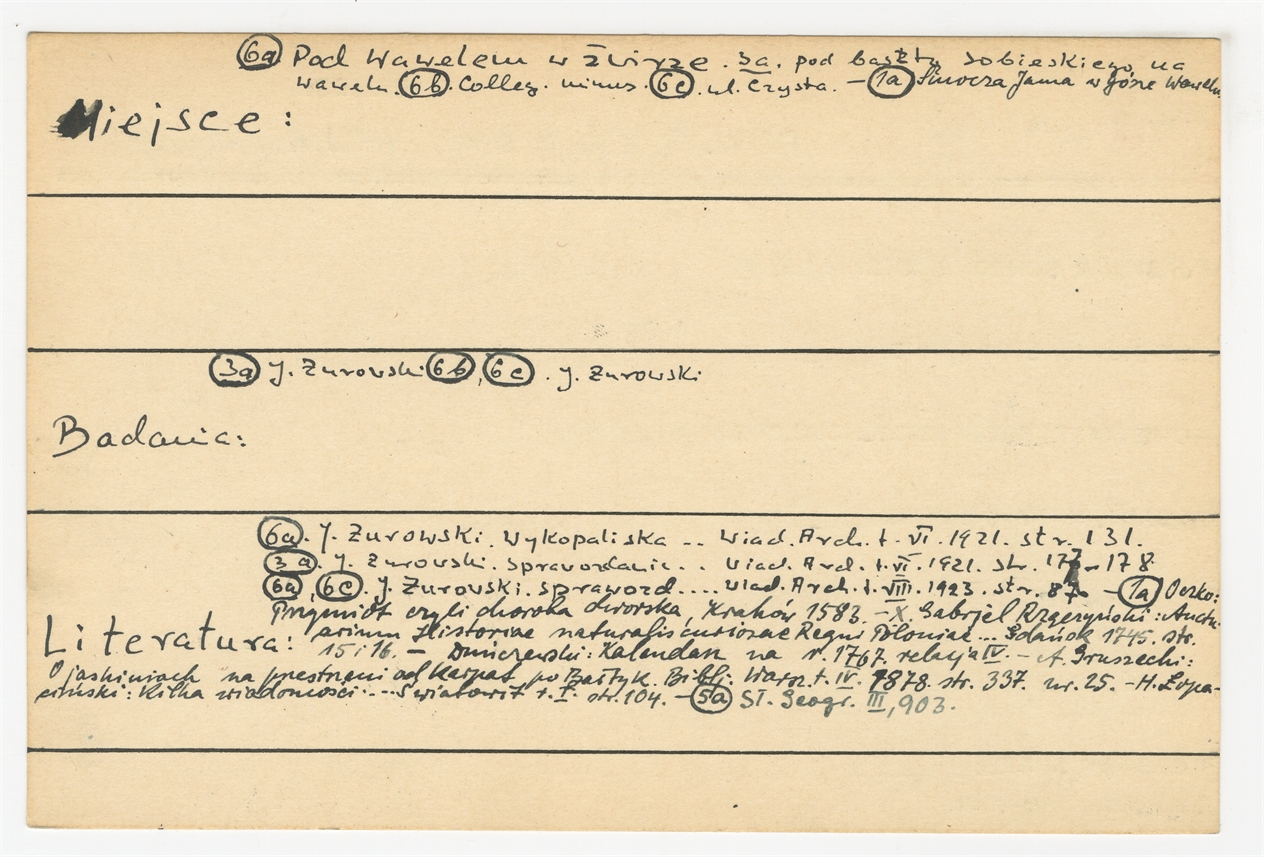 6a Pod Wawelem w żwirze. 3a. pod basztą Sobieskiego na
Wawelu. 6b. Colleg. minus. 6c. ul. Czysta. – 1a Smocza Jama w górze Wawelu.
Miejsce:
3a J. Żurowski 6b, 6c. J. Żurowski
Badania:
6a. J. Żurowski. Wykopaliska .. Wiad. Arch. t. VI. 1921. str. 131.
3a. J. Żurowski. Sprawozdanie .. Wiad. Arch. t. VI. 1921. str. 177–178.
6a, 6c. J. Żurowski. Sprawozd.... Wiad. Arch. t. VIII. 1923. str. – 1a Oczko:
Przymiot czyli choroba dworska, Kraków 1583. – X. Gabrjel Rzączyński: Auctu-
Literatura: arium Historiae naturalis curiosae Regni Poloniae... Gdańsk 1745. str.
15 i 16. – Duńczewski: Kalendarz na r. 1767. relacja IV. – A. Gruszecki:
O jaskiniach na przestrzeni od Karpat po Bałtyk. Bibl. Warsz. t. IV. 1878. str. 337. nr. 25. – H. Łopa-
ciński: Kilka wiadomości ... Światowit t. I. str. 104. – 5a Sł. Geogr. III, 903.